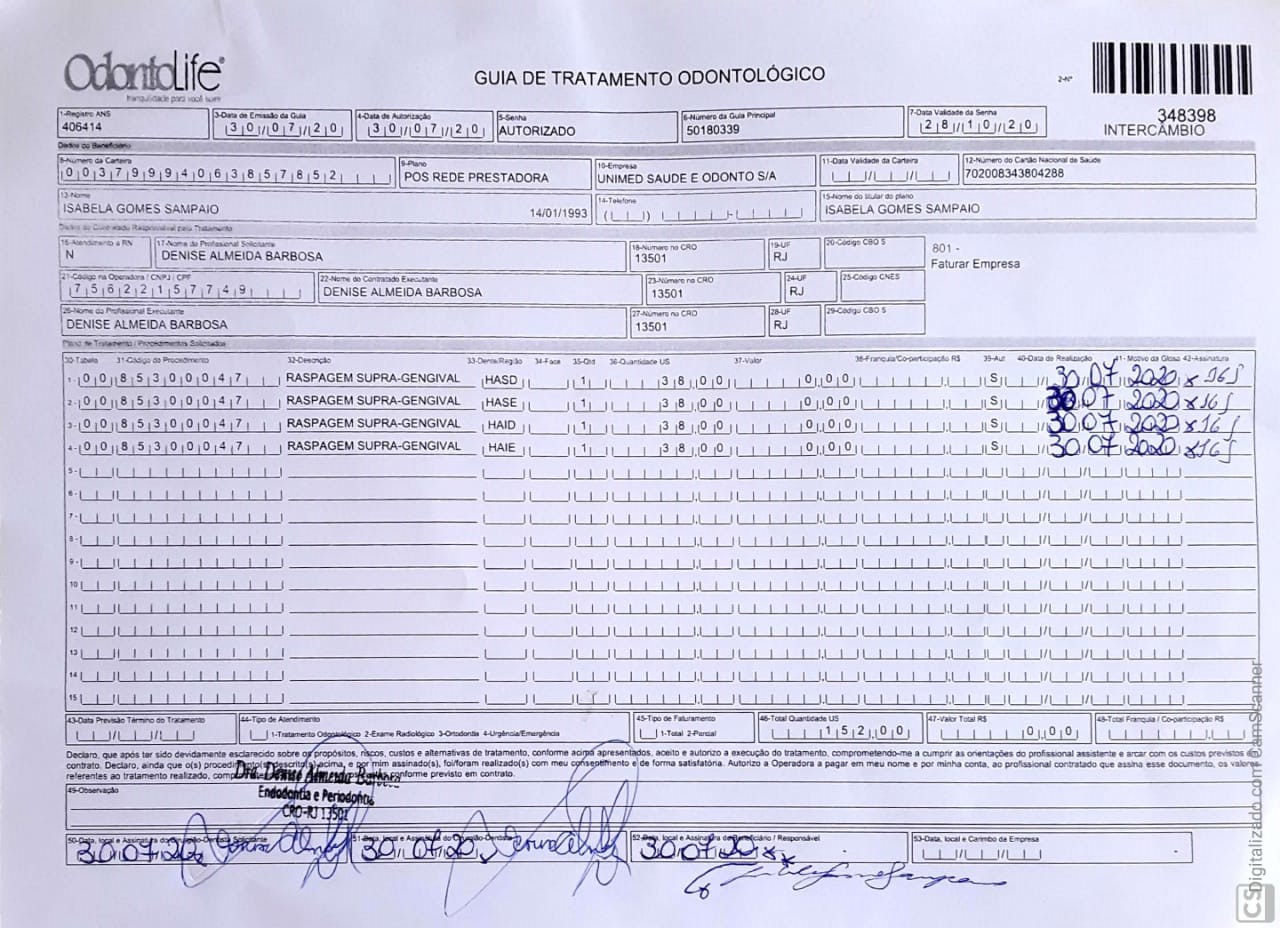 OdontoLife®
tranquilidade para você sorrir
GUIA DE TRATAMENTO ODONTOLÓGICO
2-Nº
348398
INTERCÂMBIO
1-Registro ANS
406414
3-Data de Emissão da Guia
30/07/20
4-Data de Autorização
30/07/20
5-Senha
AUTORIZADO
6-Número da Guia Principal
50180339
7-Data Validade da Senha
28/10/20
Dados do Beneficiário
8-Número da Carteira
00379994063857852
9-Plano
POS REDE PRESTADORA
10-Empresa
UNIMED SAUDE E ODONTO S/A
11-Data Validade da Carteira
12-Número do Cartão Nacional de Saúde
702008343804288
13-Nome
ISABELA GOMES SAMPAIO 14/01/1993
14-Telefone
15-Nome do titular do plano
ISABELA GOMES SAMPAIO
Dados do Contratado Responsável pelo Tratamento
16-Atendimento a RN
N
17-Nome do Profissional Solicitante
DENISE ALMEIDA BARBOSA
18-Número no CRO
13501
19-UF
RJ
20-Código CBO S
801 -
Faturar Empresa
21-Código na Operadora / CNPJ / CPF
75622157749
22-Nome do Contratado Executante
DENISE ALMEIDA BARBOSA
23-Número no CRO
13501
24-UF
RJ
25-Código CNES
26-Nome do Profissional Executante
DENISE ALMEIDA BARBOSA
27-Número no CRO
13501
28-UF
RJ
29-Código CBO S
Plano de Tratamento / Procedimentos Solicitados
30-Tabela 31-Código do Procedimento 32-Descrição 33-Dente/Região 34-Face 35-Qtd 36-Quantidade US 37-Valor 38-Franquia/Co-participação R$ 39-Aut 40-Data de Realização 41- Motivo da Glosa 42-Assinatura
1- 00 85300047 RASPAGEM SUPRA-GENGIVAL HASD 1 38,00 0,00 S 30 07 2020
2- 00 85300047 RASPAGEM SUPRA-GENGIVAL HASE 1 38,00 0,00 S 30 07 2020
3- 00 85300047 RASPAGEM SUPRA-GENGIVAL HAID 1 38,00 0,00 S 30 07 2020
4- 00 85300047 RASPAGEM SUPRA-GENGIVAL HAIE 1 38,00 0,00 S 30 07 2020
5-
6-
7-
8-
9-
10
11
12
13
14
15
43-Data Previsão Término do Tratamento
44-Tipo de Atendimento
1-Tratamento Odontológico 2-Exame Radiológico 3-Ortodontia 4-Urgência/Emergência
45-Tipo de Faturamento
1-Total 2-Parcial
46-Total Quantidade US
152,00
47-Valor Total R$
0,00
48-Total Franquia / Co-participação R$
Declaro, que após ter sido devidamente esclarecido sobre os propósitos, riscos, custos e alternativas de tratamento, conforme acima apresentados, aceito e autorizo a execução do tratamento, comprometendo-me a cumprir as orientações do profissional assistente e arcar com os custos previstos
contrato. Declaro, ainda que o(s) procedimento(s) descrito(s) acima, e por mim assinado(s), foi/foram realizado(s) com meu consentimento e de forma satisfatória. Autorizo a Operadora a pagar em meu nome e por minha conta, ao profissional contratado que assina esse documento, os valores
referentes ao tratamento realizado, conforme previsto em contrato.
Dra. Denise Almeida Barbosa
Endodontia e Periodontia
CRO-RJ 13501
49-Observação
50-Data, local e Assinatura do Cirurgião-Dentista Solicitante
30 07 20
51-Data, local e Assinatura do Cirurgião-Dentista
30 07 20
52-Data, local e Assinatura do Beneficiário / Responsável
30 07 20
53-Data, local e Carimbo da Empresa
CS Digitalizado com CamScanner